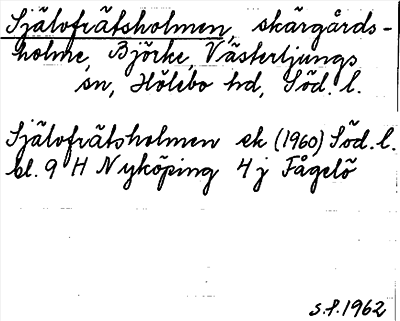 Självfrätsholmen, skärgårds-
holme, Björke, Västerljungs
sn, Hölebo hd, Söd. l.
Självfrätsholmen ek (1960) Söd. l.
bl. 9 H Nyköping 4 j Fågelö
s.f. 1962